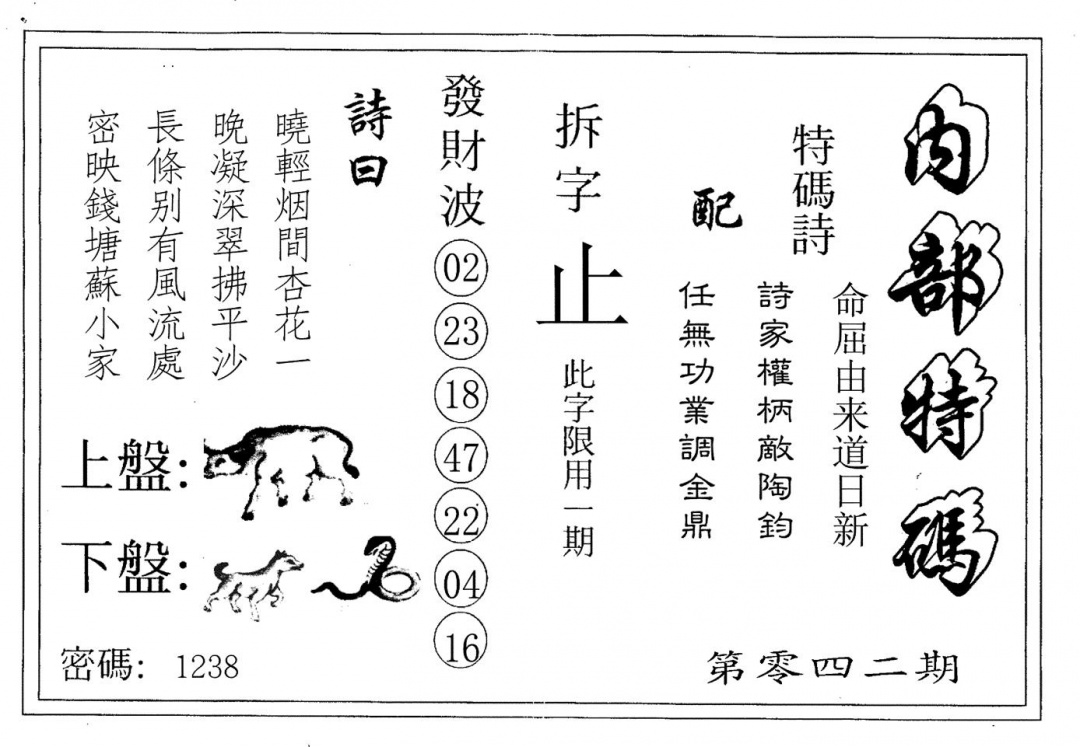 内部特碼
特碼詩
命屈由来道日新
詩家權柄敵陶鈞
任無功業調金鼎
配
拆字
止
此字限用一期
發財波
02
23
18
47
22
04
16
詩曰
曉輕烟間杏花一
晚凝深翠拂平沙
長條别有風流處
密映錢塘蘇小家
上盤：
下盤：
密碼： 1238
第零四二期